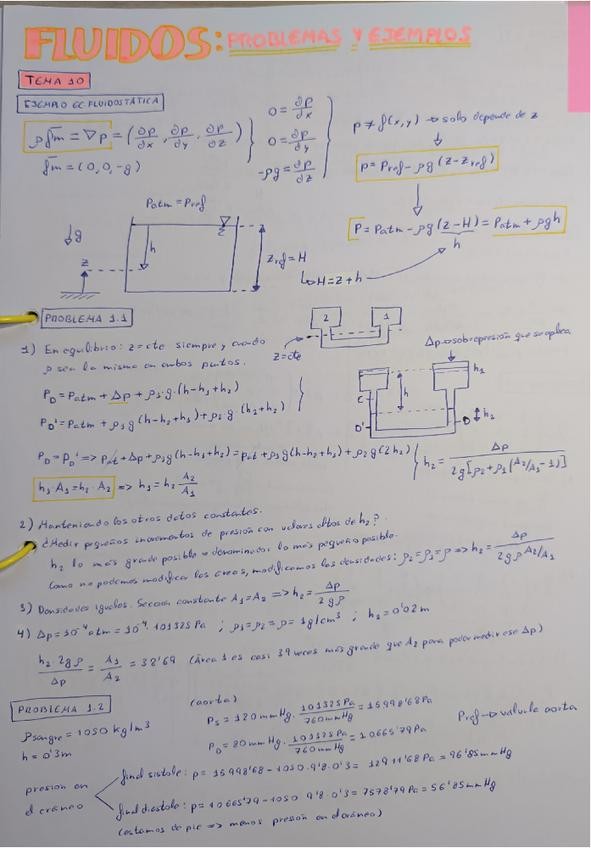 FLUIDOS: PROBLEMAS Y EJEMPLOS
TEMA 10
EJEMPLO EC FLUIDOSTÁTICA
ρf̄m = ∇p = (∂p/∂x, ∂p/∂y, ∂p/∂z)
f̄m = (0,0,-g)
0 = ∂p/∂x
0 = ∂p/∂y
-ρg = ∂p/∂z
p ≠ f(x,y) → solo depende de z
p = Pref - ρg(z - zref)
P = Patm - ρg(z-H) = Patm + ρgh
h
Patm = Pref
↓g
z
h
zref = H
↳ H = z + h
PROBLEMA 1.1
1) En equilibrio: z = cte siempre y cuando
ρ sea la misma en ambos puntos.
2
1
z = cte
Δp → sobrepresión que se aplica
h1
h
C
D'
D
h2
PD = Patm + Δp + ρ1·g·(h-h1+h2)
PD' = Patm + ρ1g(h-h2+h1) + ρ2·g·(h2+h2)
PD = PD' => Pat + Δp + ρ1g(h-h1+h2) = Pat + ρ1g(h-h2+h1) + ρ2g(2h2)
h2 = Δp / 2g[ρ2+ρ1(A2/A1 - 1)]
h1·A1 = h2·A2 => h1 = h2 A2/A1
2) Manteniendo los otros datos constantes.
¿Medir pequeños incrementos de presión con valores altos de h2?
h2 lo más grande posible → denominador lo más pequeño posible.
Como no podemos modificar las áreas, modificamos las densidades: ρ2 = ρ1 = ρ => h2 = Δp / 2gρ A2/A1
3) Densidades iguales. Sección constante A1 = A2 => h2 = Δp / 2gρ
4) Δp = 10⁻⁴ atm = 10⁻⁴ · 101325 Pa ; ρ1 = ρ2 = ρ = 1g/cm³ ; h2 = 0'02m
h2·2gρ / Δp = A1/A2 = 38'69 (Área 1 es casi 39 veces más grande que A2 para poder medir ese Δp)
PROBLEMA 1.2
(aorta)
ρsangre = 1050 kg/m³
h = 0'3m
Ps = 120 mmHg · 101325 Pa / 760 mmHg = 15998'68 Pa
PD = 80 mmHg · 101325 Pa / 760 mmHg = 10665'79 Pa
Pref → válvula aorta
presión en
el cráneo
final sístole: p = 15998'68 - 1050·9'8·0'3 = 12911'68 Pa = 96'85 mmHg
final diástole: p = 10665'79 - 1050·9'8·0'3 = 7578'79 Pa = 56'85 mmHg
(estamos de pie => menos presión en el cráneo)